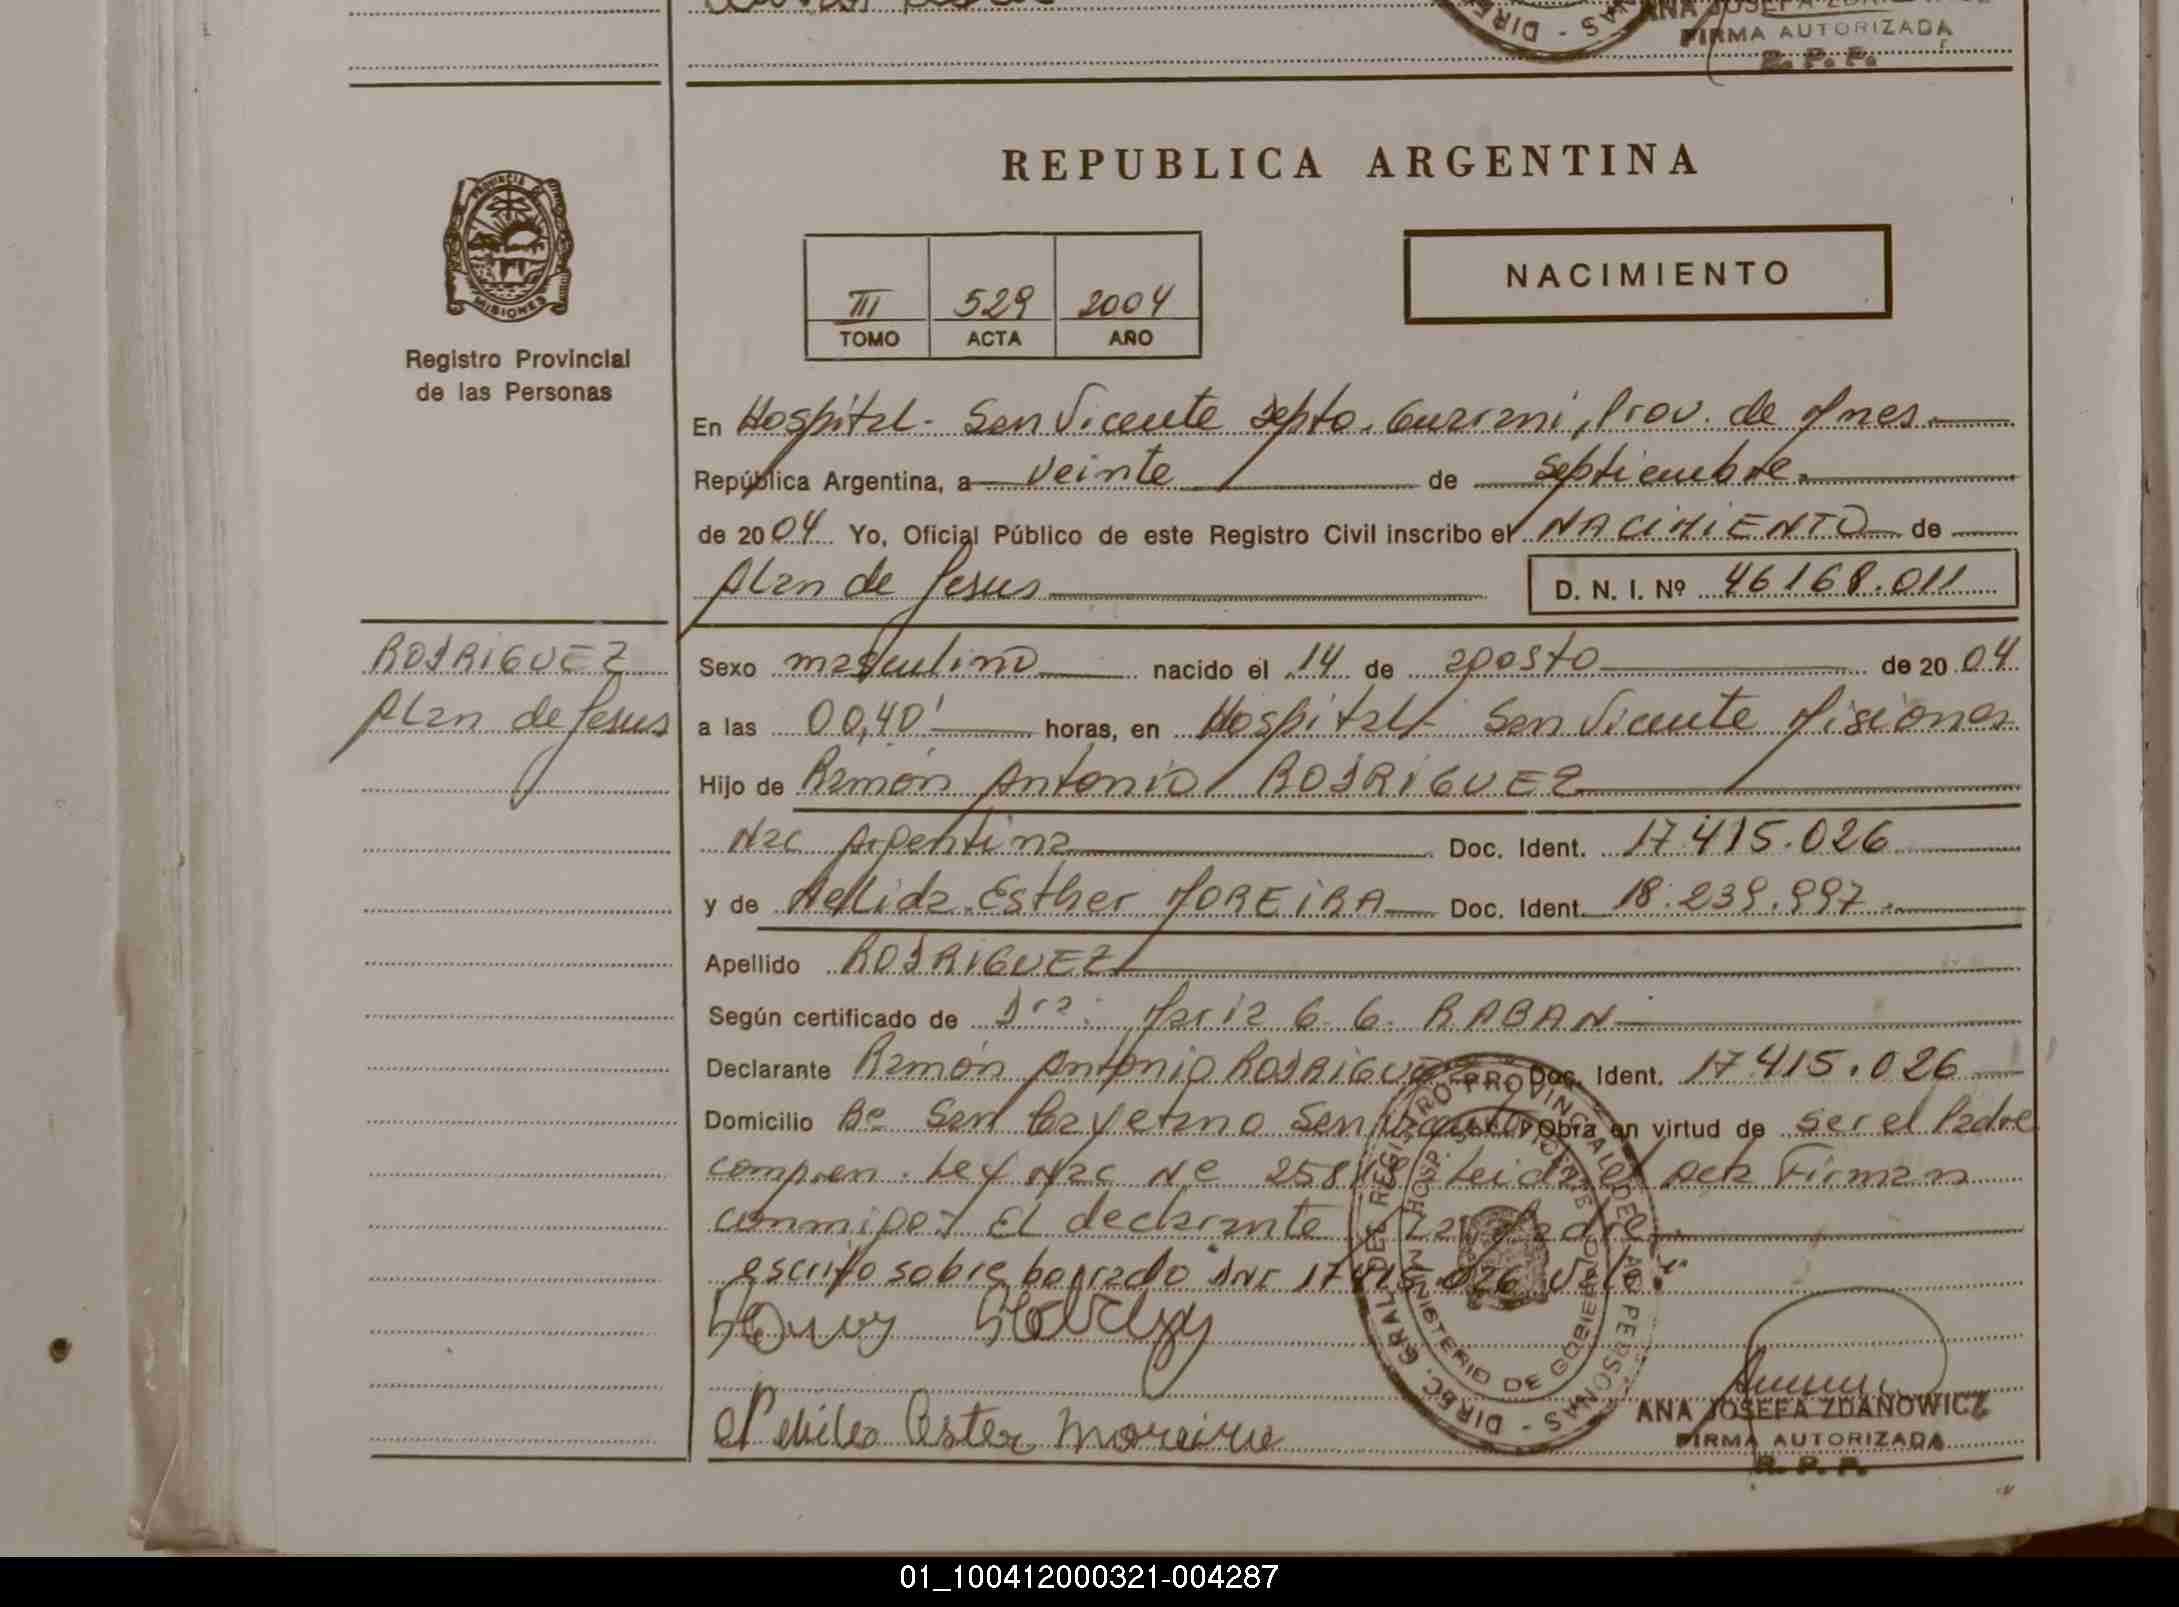 ANA JOSEFA
FIRMA AUTORIZADA
R. P. P.
DIRE
AS -
REPUBLICA ARGENTINA
PROVINCIA DE
MISIONES
Registro Provincial
de las Personas
III 529 2004
TOMO ACTA AÑO
NACIMIENTO
En Hospital - San Vicente Depto. Guarani, Prov. de Mnes.
República Argentina, a veinte de Septiembre.
de 2004 Yo, Oficial Público de este Registro Civil inscribo el NACIMIENTO de
Alan de Jesus
D. N. I. Nº 46168.011
RODRIGUEZ
Alan de Jesus
Sexo masculino nacido el 14 de agosto de 2004
a las 00,40' horas, en Hospital - San Vicente Misiones
Hijo de Ramón Antonio RODRIGUEZ
Nac Argentina Doc. Ident. 17.415.026
y de Nellida Esther MOREIRA Doc. Ident. 18.239.997.
Apellido RODRIGUEZ
Según certificado de Dra: Maria G. G. RABAN
Declarante Ramón Antonio RODRIGUEZ Doc. Ident. 17.415.026
Domicilio Bº San Cayetano San Vicente Obra en virtud de ser el Padre
compren. Ley Nac Nº 25818 Leida el Acta Firman
conmigo: El declarante y La Madre.
escrito sobre borrado DNI 17.415.026 Vale."
Nelida Ester Moreira
DIREC. GRAL. DEL REGISTRO PROVINCIAL DE LAS PERSONAS -
MINISTERIO DE GOBIERNO
HOSP. S. VICENTE
ANA JOSEFA ZDANOWICZ
FIRMA AUTORIZADA
R. P. P.
01_100412000321-004287